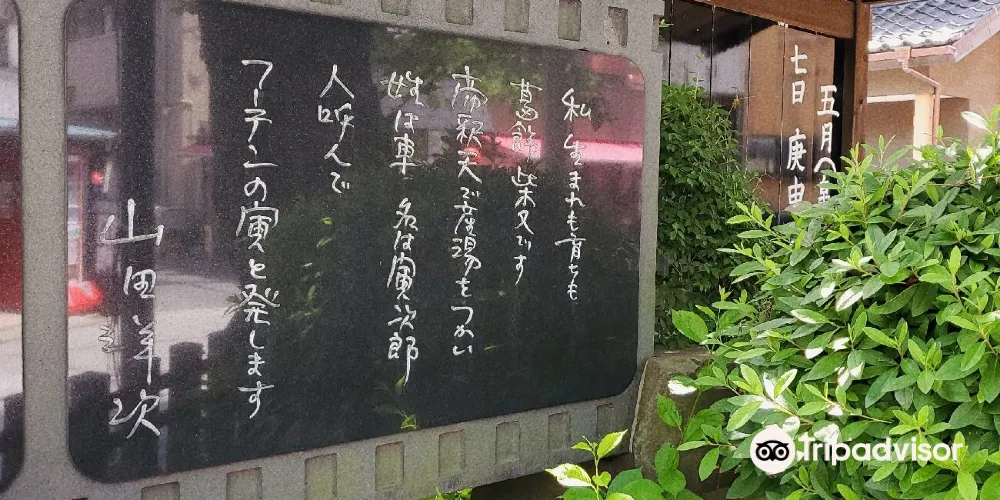 私生まれも育ちも
葛飾柴又です
帝釈天で産湯をつかい
姓は車 名は寅次郎
人呼んで
フーテンの寅と発します
山田洋次
五月
七日 庚申
Tripadvisor